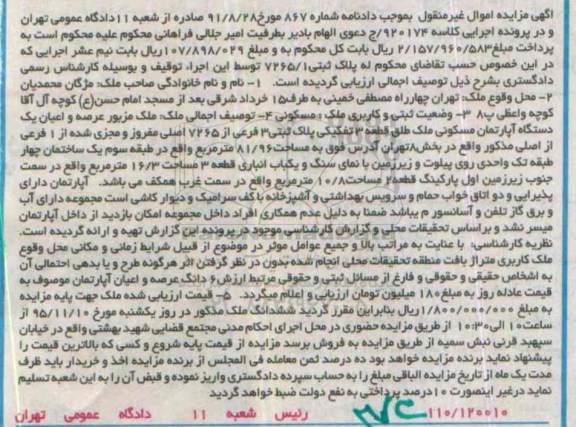 آگهی مزایده اموال غیرمنقول بموجب دادنامه شماره ۸۶۷ مورخ ۹۱/۸/۲۸ صادره از شعبه ۱۱ دادگاه عمومی تهران
و در پرونده اجرایی کلاسه ۹۲۰۱۷۴/ج دعوی الهام بادبر بطرفیت امیر جلالی فراهانی محکوم علیه محکوم است به
پرداخت مبلغ ۲/۱۵۷/۹۶۰/۵۸۳ ریال بابت کل محکوم به و مبلغ ۱۰۷/۸۹۸/۰۲۹ ریال بابت نیم عشر اجرایی که
در این خصوص حسب تقاضای محکوم له پلاک ثبتی ۷۲۶۵/۱ توسط این اجرا، توقیف و بوسیله کارشناس رسمی
دادگستری بشرح ذیل توصیف اجمالی ارزیابی گردیده است. ۱- نام و نام خانوادگی صاحب ملک: مژگان محمدیان
۲- محل وقوع ملک: تهران چهارراه مصطفی خمینی به طرف ۱۵ خرداد شرقی بعد از مسجد امام حسن(ع) کوچه آل آقا
کوچه واعظی پ ۸ ۳- وضعیت ثبتی و کاربری ملک: مسکونی ۴- توصیف اجمالی ملک: ملک مزبور عرصه و اعیان یک
دستگاه آپارتمان مسکونی ملک طلق قطعه ۳ تفکیکی پلاک ثبتی ۳ فرعی از ۷۲۶۵ اصلی مفروز و مجزی شده از ۱ فرعی
از اصلی مذکور واقع در بخش ۸ تهران آدرس فوق به مساحت ۸۱/۹۶ مترمربع واقع در طبقه سوم یک ساختمان چهار
طبقه تک واحدی روی پیلوت و زیرزمین با نمای سنگ و یکباب انباری قطعه ۳ مساحت ۱۶/۳ مترمربع واقع در سمت
جنوب زیرزمین اول پارکینگ قطعه ۲ مساحت ۱۰/۸ مترمربع واقع در سمت غرب همکف می باشد. آپارتمان دارای
پذیرایی و دو اتاق خواب حمام و سرویس بهداشتی و آشپزخانه با کف سرامیک و دیوار کاشی است مجموعه دارای آب
و برق گاز تلفن و آسانسور م یباشد ضمنا به دلیل عدم همکاری افراد داخل مجموعه امکان بازدید از داخل آپارتمان
میسر نشد و براساس تحقیقات محلی و گزارش کارشناسی موجود در پرونده این گزارش تهیه و ارائه گردیده است.
نظریه کارشناسی: با عنایت به مراتب بالا و جمیع عوامل موثر در موضوع از قبیل شرایط زمانی و مکانی محل وقوع
ملک کاربری متراژ بافت منطقه تحقیقات محلی انجام شده بدون در نظر گرفتن اثر هرگونه طرح و یا بدهی احتمالی آن
به اشخاص حقیقی و حقوقی و فارغ از مسائل ثبتی و حقوقی مرتبط ارزش ۶ دانگ عرصه و اعیان آپارتمان موصوف به
قیمت عادله روز به مبلغ ۱۸۰ میلیون تومان ارزیابی و اعلام میگردد. ۵- قیمت ارزیابی شده ملک جهت پایه مزایده
به مبلغ ۱/۸۰۰/۰۰۰/۰۰۰ ریال بنابراین مقرر گردید ششدانگ ملک مذکور در روز یکشنبه مورخ ۹۵/۱۱/۱۰ از
ساعت ۱۰ الی ۱۰:۳۰ از طریق مزایده حضوری در محل اجرای احکام مدنی مجتمع قضایی شهید بهشتی واقع در خیابان
سپهبد قرنی نبش سمیه از طریق مزایده به فروش برسد مزایده از قیمت پایه شروع و کسی که بالاترین قیمت را
پیشنهاد نماید برنده مزایده خواهد بود ده درصد ثمن معامله فی المجلس از برنده مزایده اخذ و خریدار باید ظرف
مدت یک ماه از تاریخ مزایده الباقی مبلغ را به حساب سپرده دادگستری واریز نموده و قبض آن را به این شعبه تسلیم
نماید درغیر اینصورت ۱۰ درصد پرداختی به نفع دولت ضبط خواهد گردید
۱۱۰/۱۲۰۰۱۰ رئیس شعبه ۱۱ دادگاه عمومی تهران